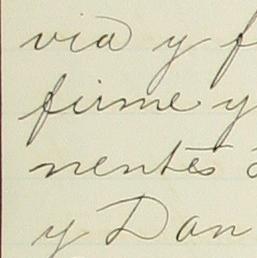 via y f
firme y
nentes
y Dan